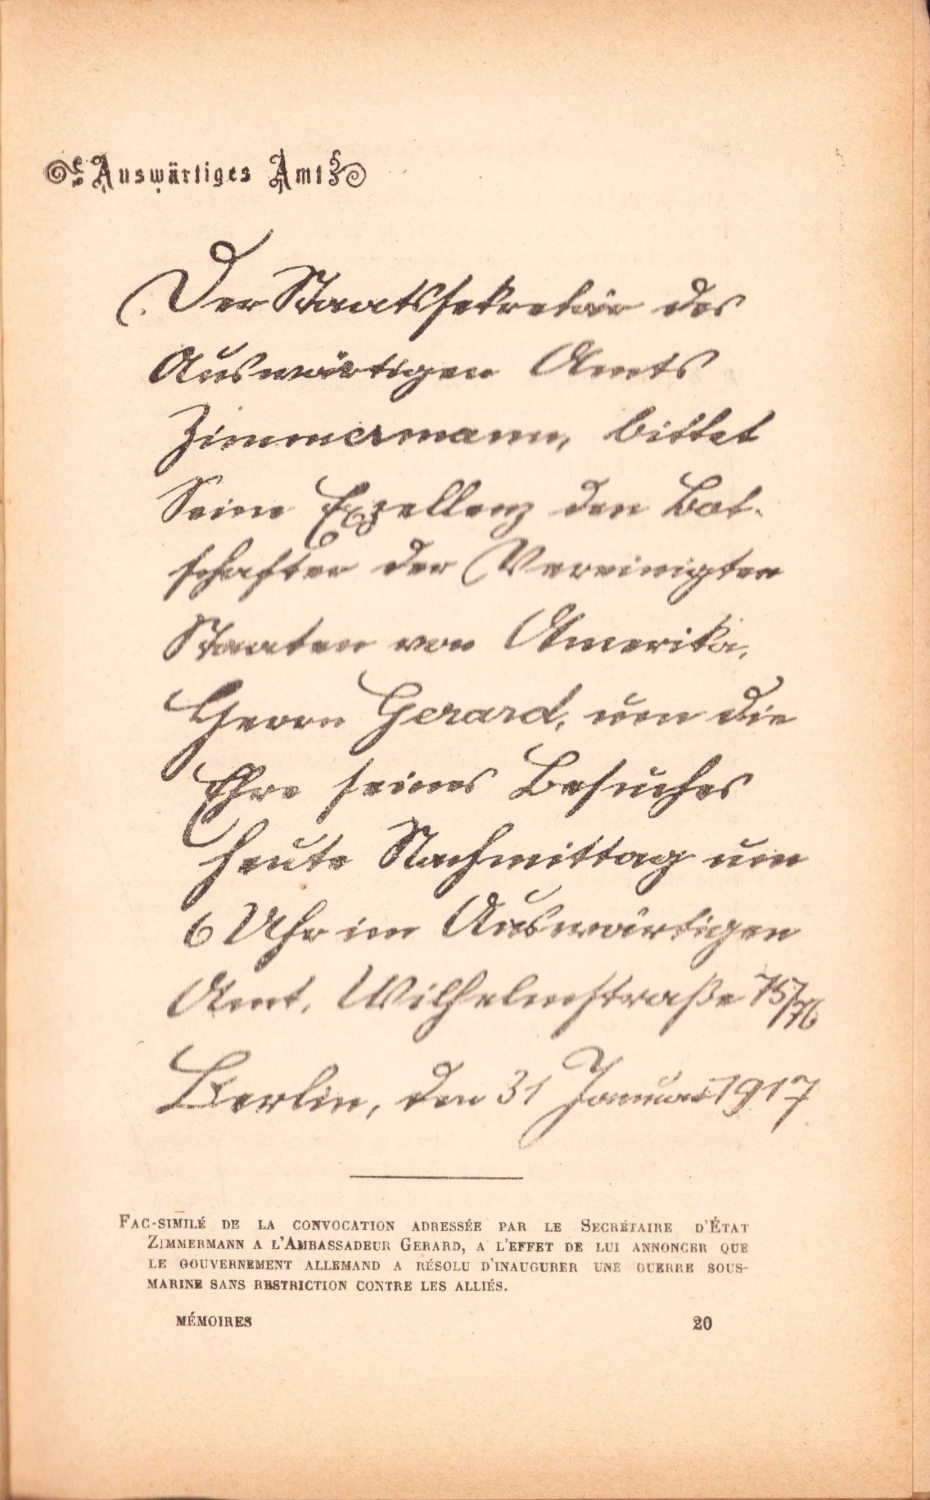 Auswärtiges Amt
Der Staatssekretär des
Auswärtigen Amts
Zimmermann, bittet
Seine Exzellenz den Bot-
schafter der Vereinigten
Staaten von Amerika,
Herrn Gerard, um die
Ehre seines Besuches
heute Nachmittag um
6 Uhr im Auswärtigen
Amt, Wilhelmstraße 75/76
Berlin, den 31 Januar 1917
FAC-SIMILÉ DE LA CONVOCATION ADRESSÉE PAR LE SECRÉTAIRE D'ÉTAT
ZIMMERMANN A L'AMBASSADEUR GERARD, A L'EFFET DE LUI ANNONCER QUE
LE GOUVERNEMENT ALLEMAND A RÉSOLU D'INAUGURER UNE GUERRE SOUS-
MARINE SANS RESTRICTION CONTRE LES ALLIÉS.
MÉMOIRES 20